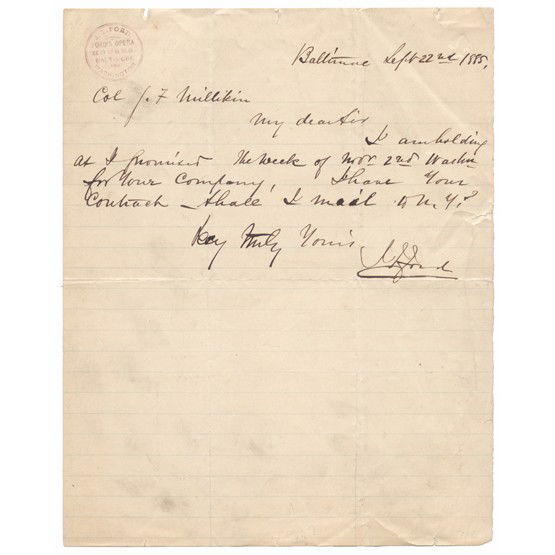 J. T. FORD
FORD'S OPERA
BALTIMORE
WASHINGTON
Baltimore Sept 22nd 1885,
Col J. F Millikin
My dear Sir
I am holding
as I promised the week of Nov 2nd Washn
for Your Company, I have Your
Contract – Shall I mail to N. Y.?
Very Truly Yours
J T Ford